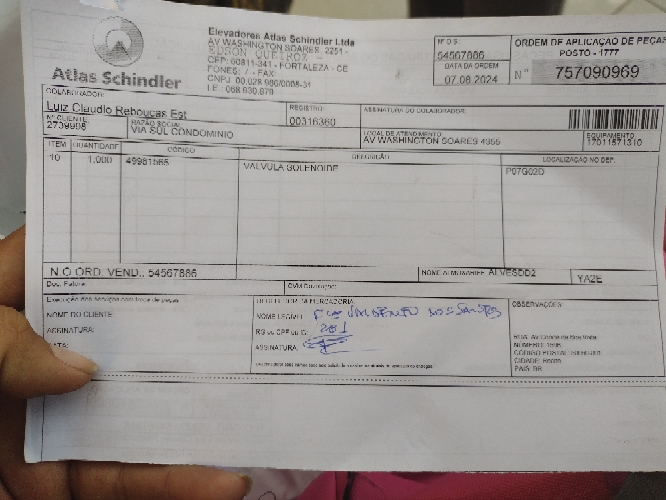 Atlas Schindler
Elevadores Atlas Schindler Ltda
AV WASHINGTON SOARES, 2251 -
EDSON QUEIROZ -
CEP: 60811-341 - FORTALEZA - CE
FONES: / - FAX:
CNPJ. 00.028.986/0008-31
I.E.: 068.930.879
Nº O.S.
54567886
DATA DA ORDEM
07.08.2024
ORDEM DE APLICAÇÃO DE PEÇAS
POSTO - 1777
N° 757090969
COLABORADOR:
Luiz Claudio Rebouças Est
REGISTRO
00316360
ASSINATURA DO COLABORADOR
Nº CLIENTE
2739998
RAZÃO SOCIAL
VIA SUL CONDOMINIO
LOCAL DE ATENDIMENTO
AV WASHINGTON SOARES 4355
EQUIPAMENTO
17011571310
ITEM QUANTIDADE CÓDIGO DESCRIÇÃO LOCALIZAÇÃO NO DEP.
10 1,000 49981565 VALVULA SOLENOIDE P07G02D
N.O ORD. VEND.: 54567886
NOME ALMOXARIFE: ALVESDD2
YA2E
Doc. Fatura:
Execução dos serviços com troca de peças
NOME DO CLIENTE:
ASSINATURA:
DATA:
RECEBEDOR DA MERCADORIA
NOME LEGÍVEL:
RG ou CPF ou IC: 281
ASSINATURA:
OBSERVAÇÕES:
RUA: Av Conde da Boa Vista
CIDADE: Recife
PAÍS: BR